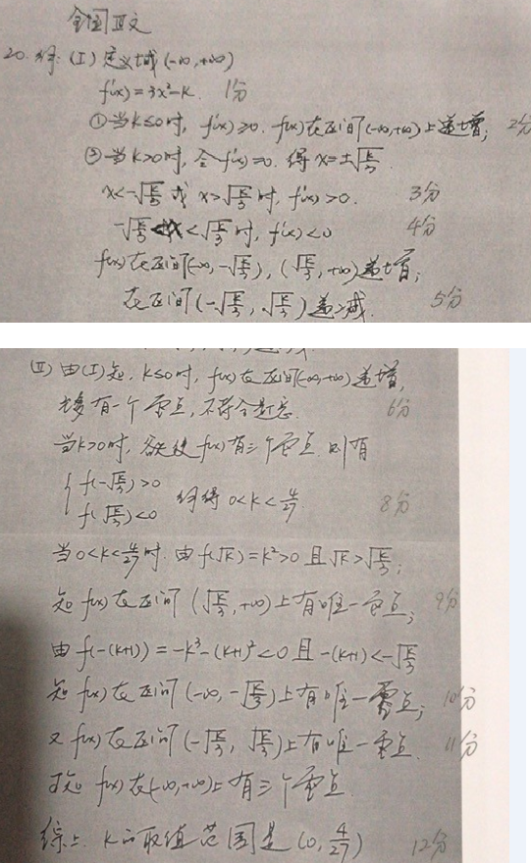 全国Ⅲ文
20. 解: (Ⅰ) 定义域(-∞,+∞)
f'(x)=3x²-k. 1分
①当k≤0时, f'(x)≥0. f(x)在区间(-∞,+∞)上递增; 2分
②当k>0时, 令f'(x)=0. 得x=±√(k/3)
x<-√(k/3) 或 x>√(k/3)时, f'(x)>0. 3分
-√(k/3)<x<√(k/3)时, f'(x)<0 4分
f(x)在区间(-∞,-√(k/3)), (√(k/3),+∞)递增;
在区间(-√(k/3),√(k/3))递减. 5分
(Ⅱ) 由(Ⅰ)知, k≤0时, f(x)在区间(-∞,+∞)递增,
有一个零点, 不符合题意. 6分
当k>0时, f(x)有三个零点. 则有
{ f(-√(k/3))>0
f(√(k/3))<0 解得 0<k<4/27 8分
当0<k<4/27时. 由f(√k)=k²>0 且 √k>√(k/3);
知f(x)在区间(√(k/3),+∞)上有唯一零点; 9分
由f(-(k+1))=-k³-(k+1)²<0 且 -(k+1)<-√(k/3)
知f(x)在区间(-∞,-√(k/3))上有唯一零点; 10分
又f(x)在区间(-√(k/3),√(k/3))上有唯一零点. 11分
知f(x)在(-∞,+∞)上有三个零点.
综上. k的取值范围是(0,4/27) 12分